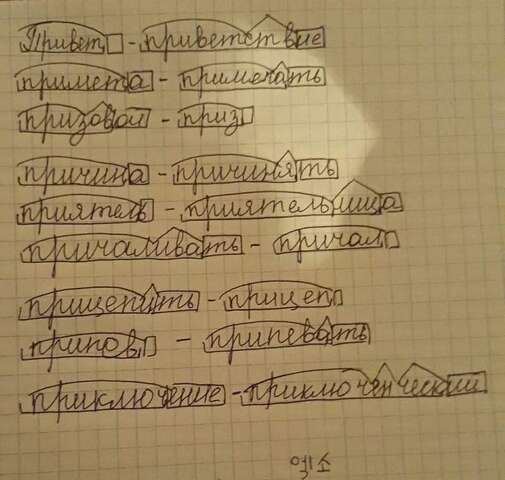 Привет - приветствие
примета - примечать
призовой - приз
причина - причинять
приятель - приятельница
причаливать - причал
прицепить - прицеп
припев - припевать
приключение - приключенческий